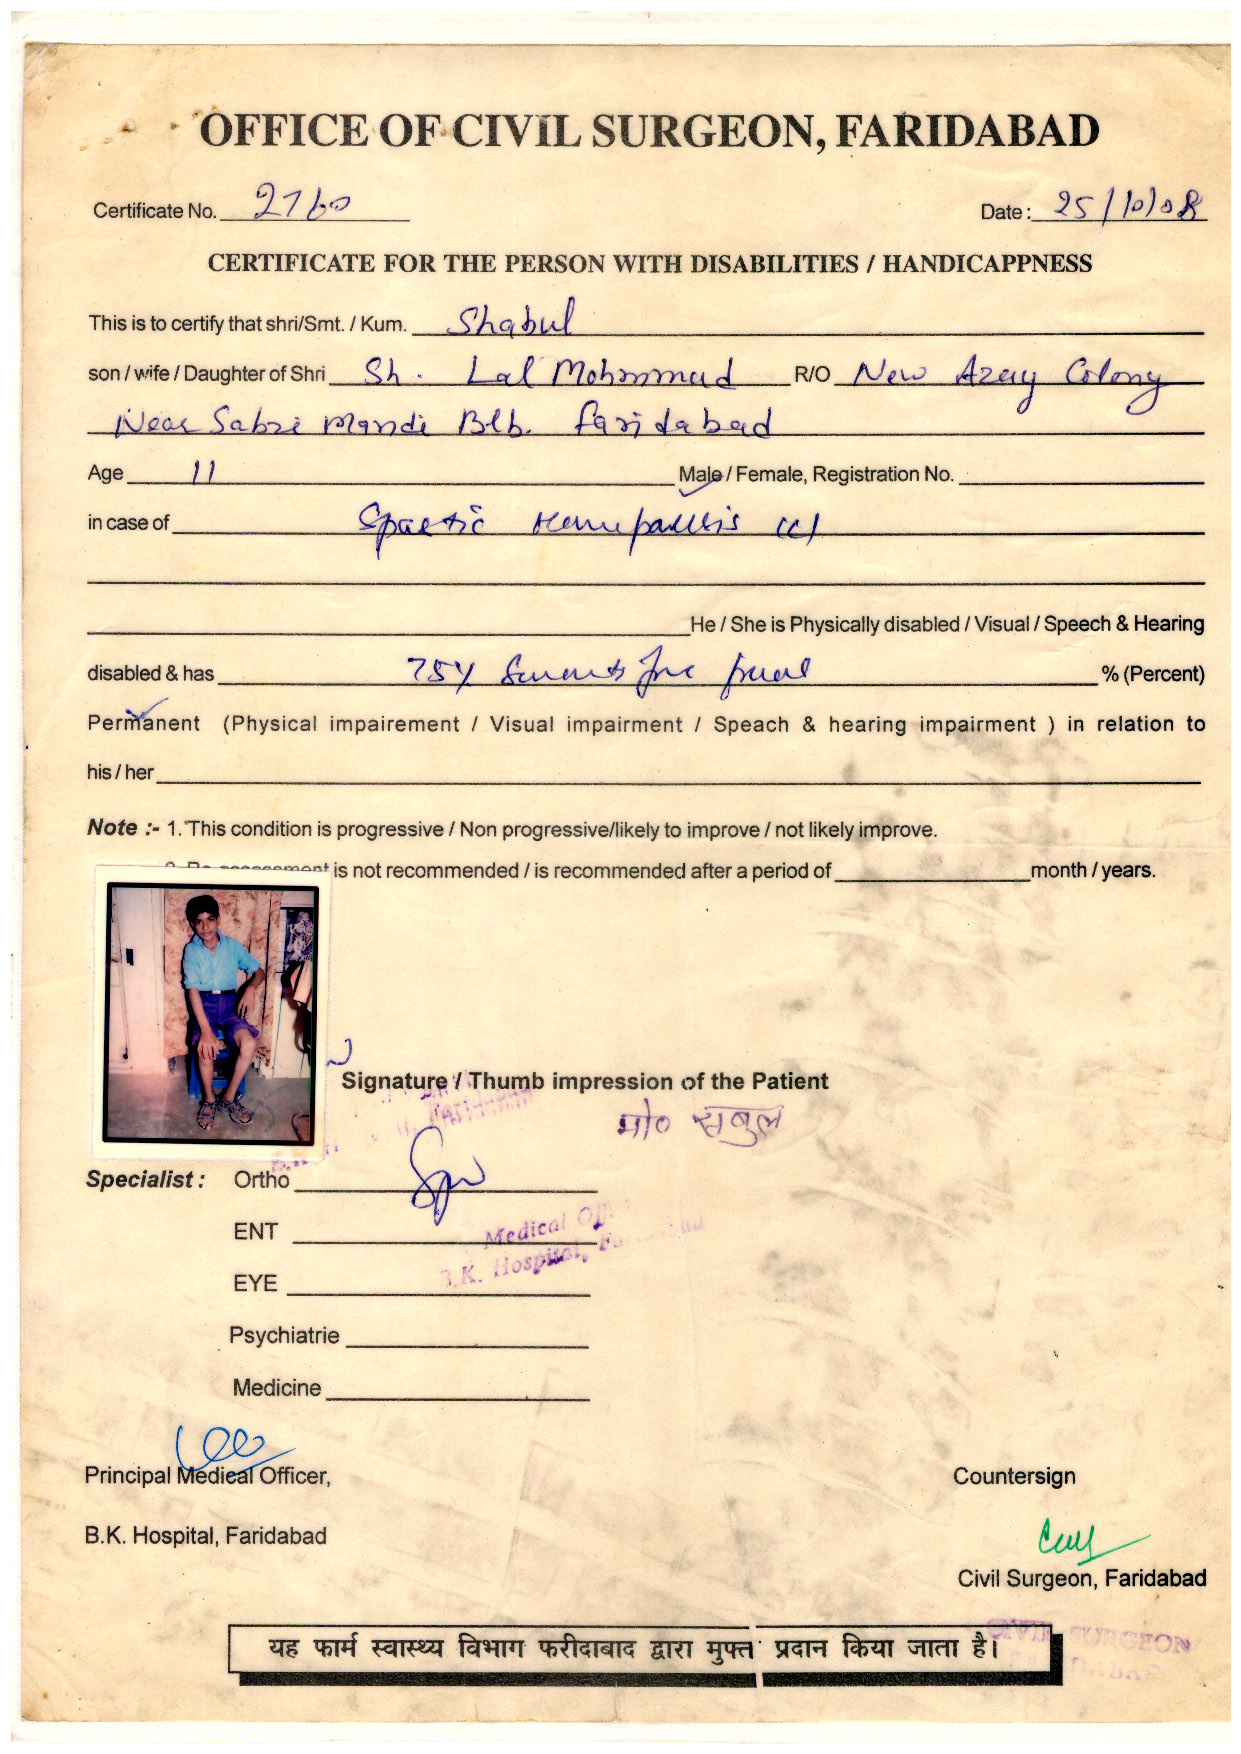 OFFICE OF CIVIL SURGEON, FARIDABAD
Certificate No. 2760 Date: 25/10/08
CERTIFICATE FOR THE PERSON WITH DISABILITIES / HANDICAPPNESS
This is to certify that shri/Smt. / Kum. Shabul
son / wife / Daughter of Shri Sh. Lal Mohmmad R/O New Azay Colony
Near Sabzi Mandi Blb. Faridabad
Age 11 Male / Female, Registration No.
in case of Spastic
He / She is Physically disabled / Visual / Speech & Hearing
disabled & has 75% % (Percent)
Permanent (Physical impairement / Visual impairment / Speach & hearing impairment ) in relation to
his / her
Note :- 1. This condition is progressive / Non progressive/likely to improve / not likely improve.
is not recommended / is recommended after a period of month / years.
Signature / Thumb impression of the Patient
मो० सबुल
Specialist : Ortho
ENT
Medical
B.K. Hospital,
EYE
Psychiatrie
Medicine
Principal Medical Officer, Countersign
B.K. Hospital, Faridabad
Civil Surgeon, Faridabad
CIVIL SURGEON
यह फार्म स्वास्थ्य विभाग फरीदाबाद द्वारा मुफ्त प्रदान किया जाता है।